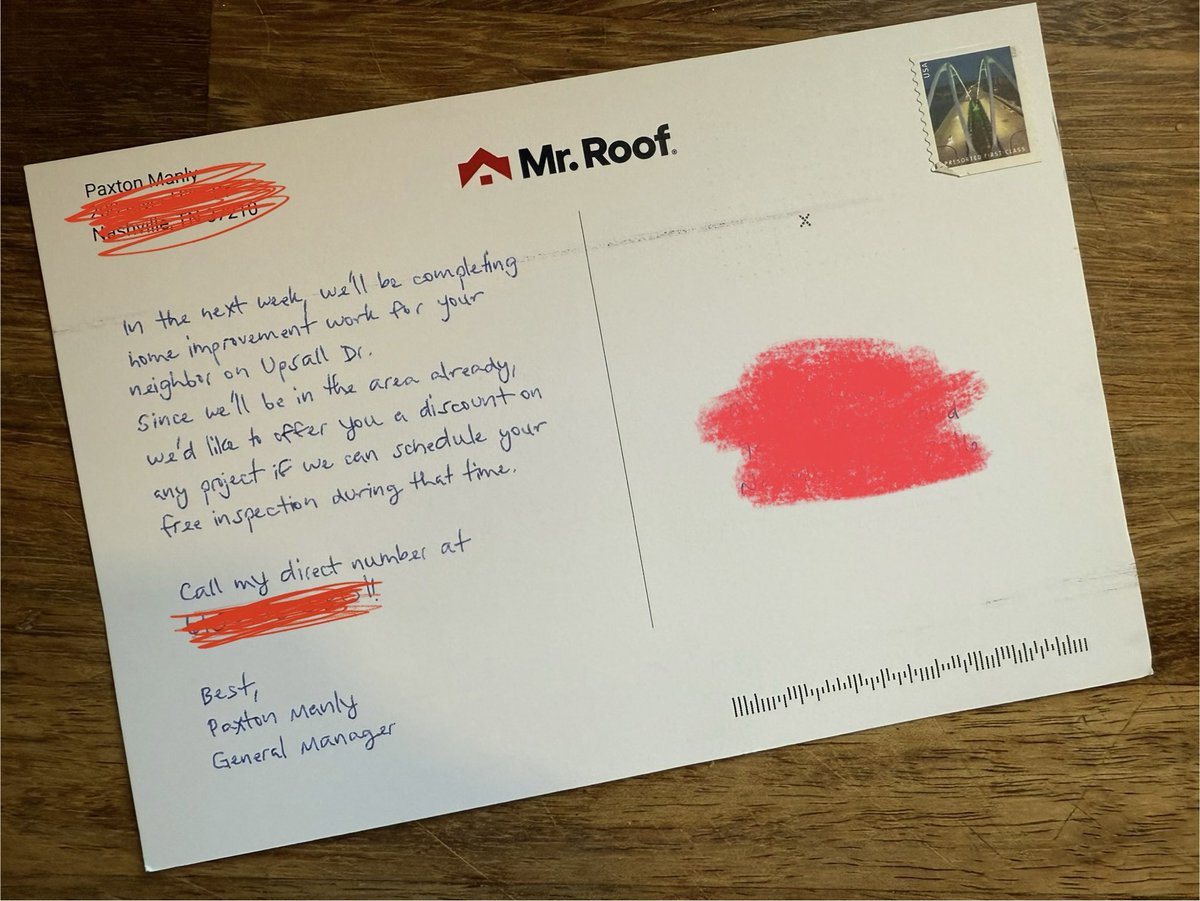 Paxton Manly
Nashville, TN 37210
Mr. Roof®
USA
PRESORTED FIRST-CLASS
X
In the next week, we'll be completing
home improvement work for your
neighbor on Upsall Dr.
Since we'll be in the area already,
we'd like to offer you a discount on
any project if we can schedule your
free inspection during that time.
Call my direct number at
!!
Best,
Paxton Manly
General Manager